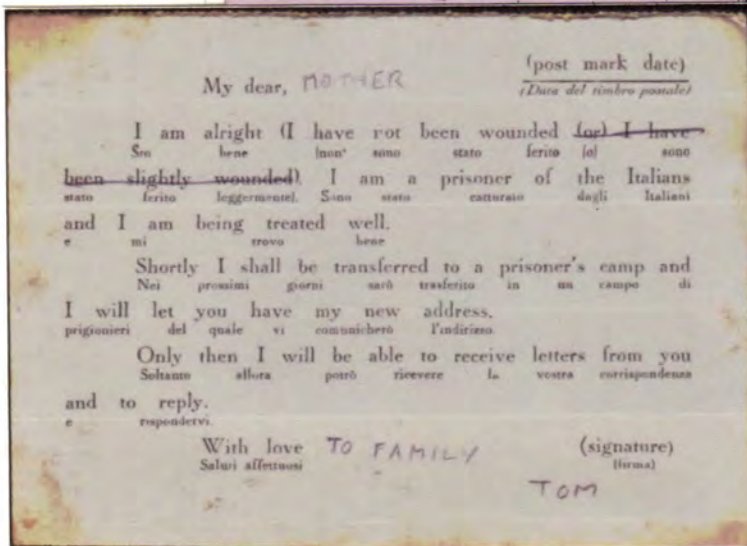 (post mark date)
My dear, MOTHER
(Data del timbro postale)
I am alright (I have not been wounded (or) I have
Sto bene (non sono stato ferito (o) sono
been slightly wounded). I am a prisoner of the Italians
stato ferito leggermente). Sono stato catturato dagli Italiani
and I am being treated well.
e mi trovo bene
Shortly I shall be transferred to a prisoner's camp and
Nei prossimi giorni sarò trasferito in un campo di
I will let you have my new address.
prigionieri del quale vi comunicherò l'indirizzo
Only then I will be able to receive letters from you
Soltanto allora potrò ricevere la vostra corrispondenza
and to reply.
e rispondervi.
With love TO FAMILY (signature)
Saluti affettuosi (firma)
TOM